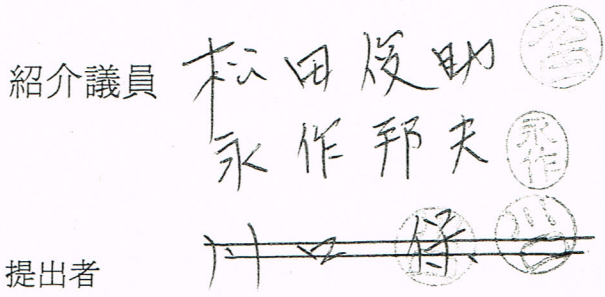 紹介議員 松田俊助
永作邦夫 永作
川口 保
提出者